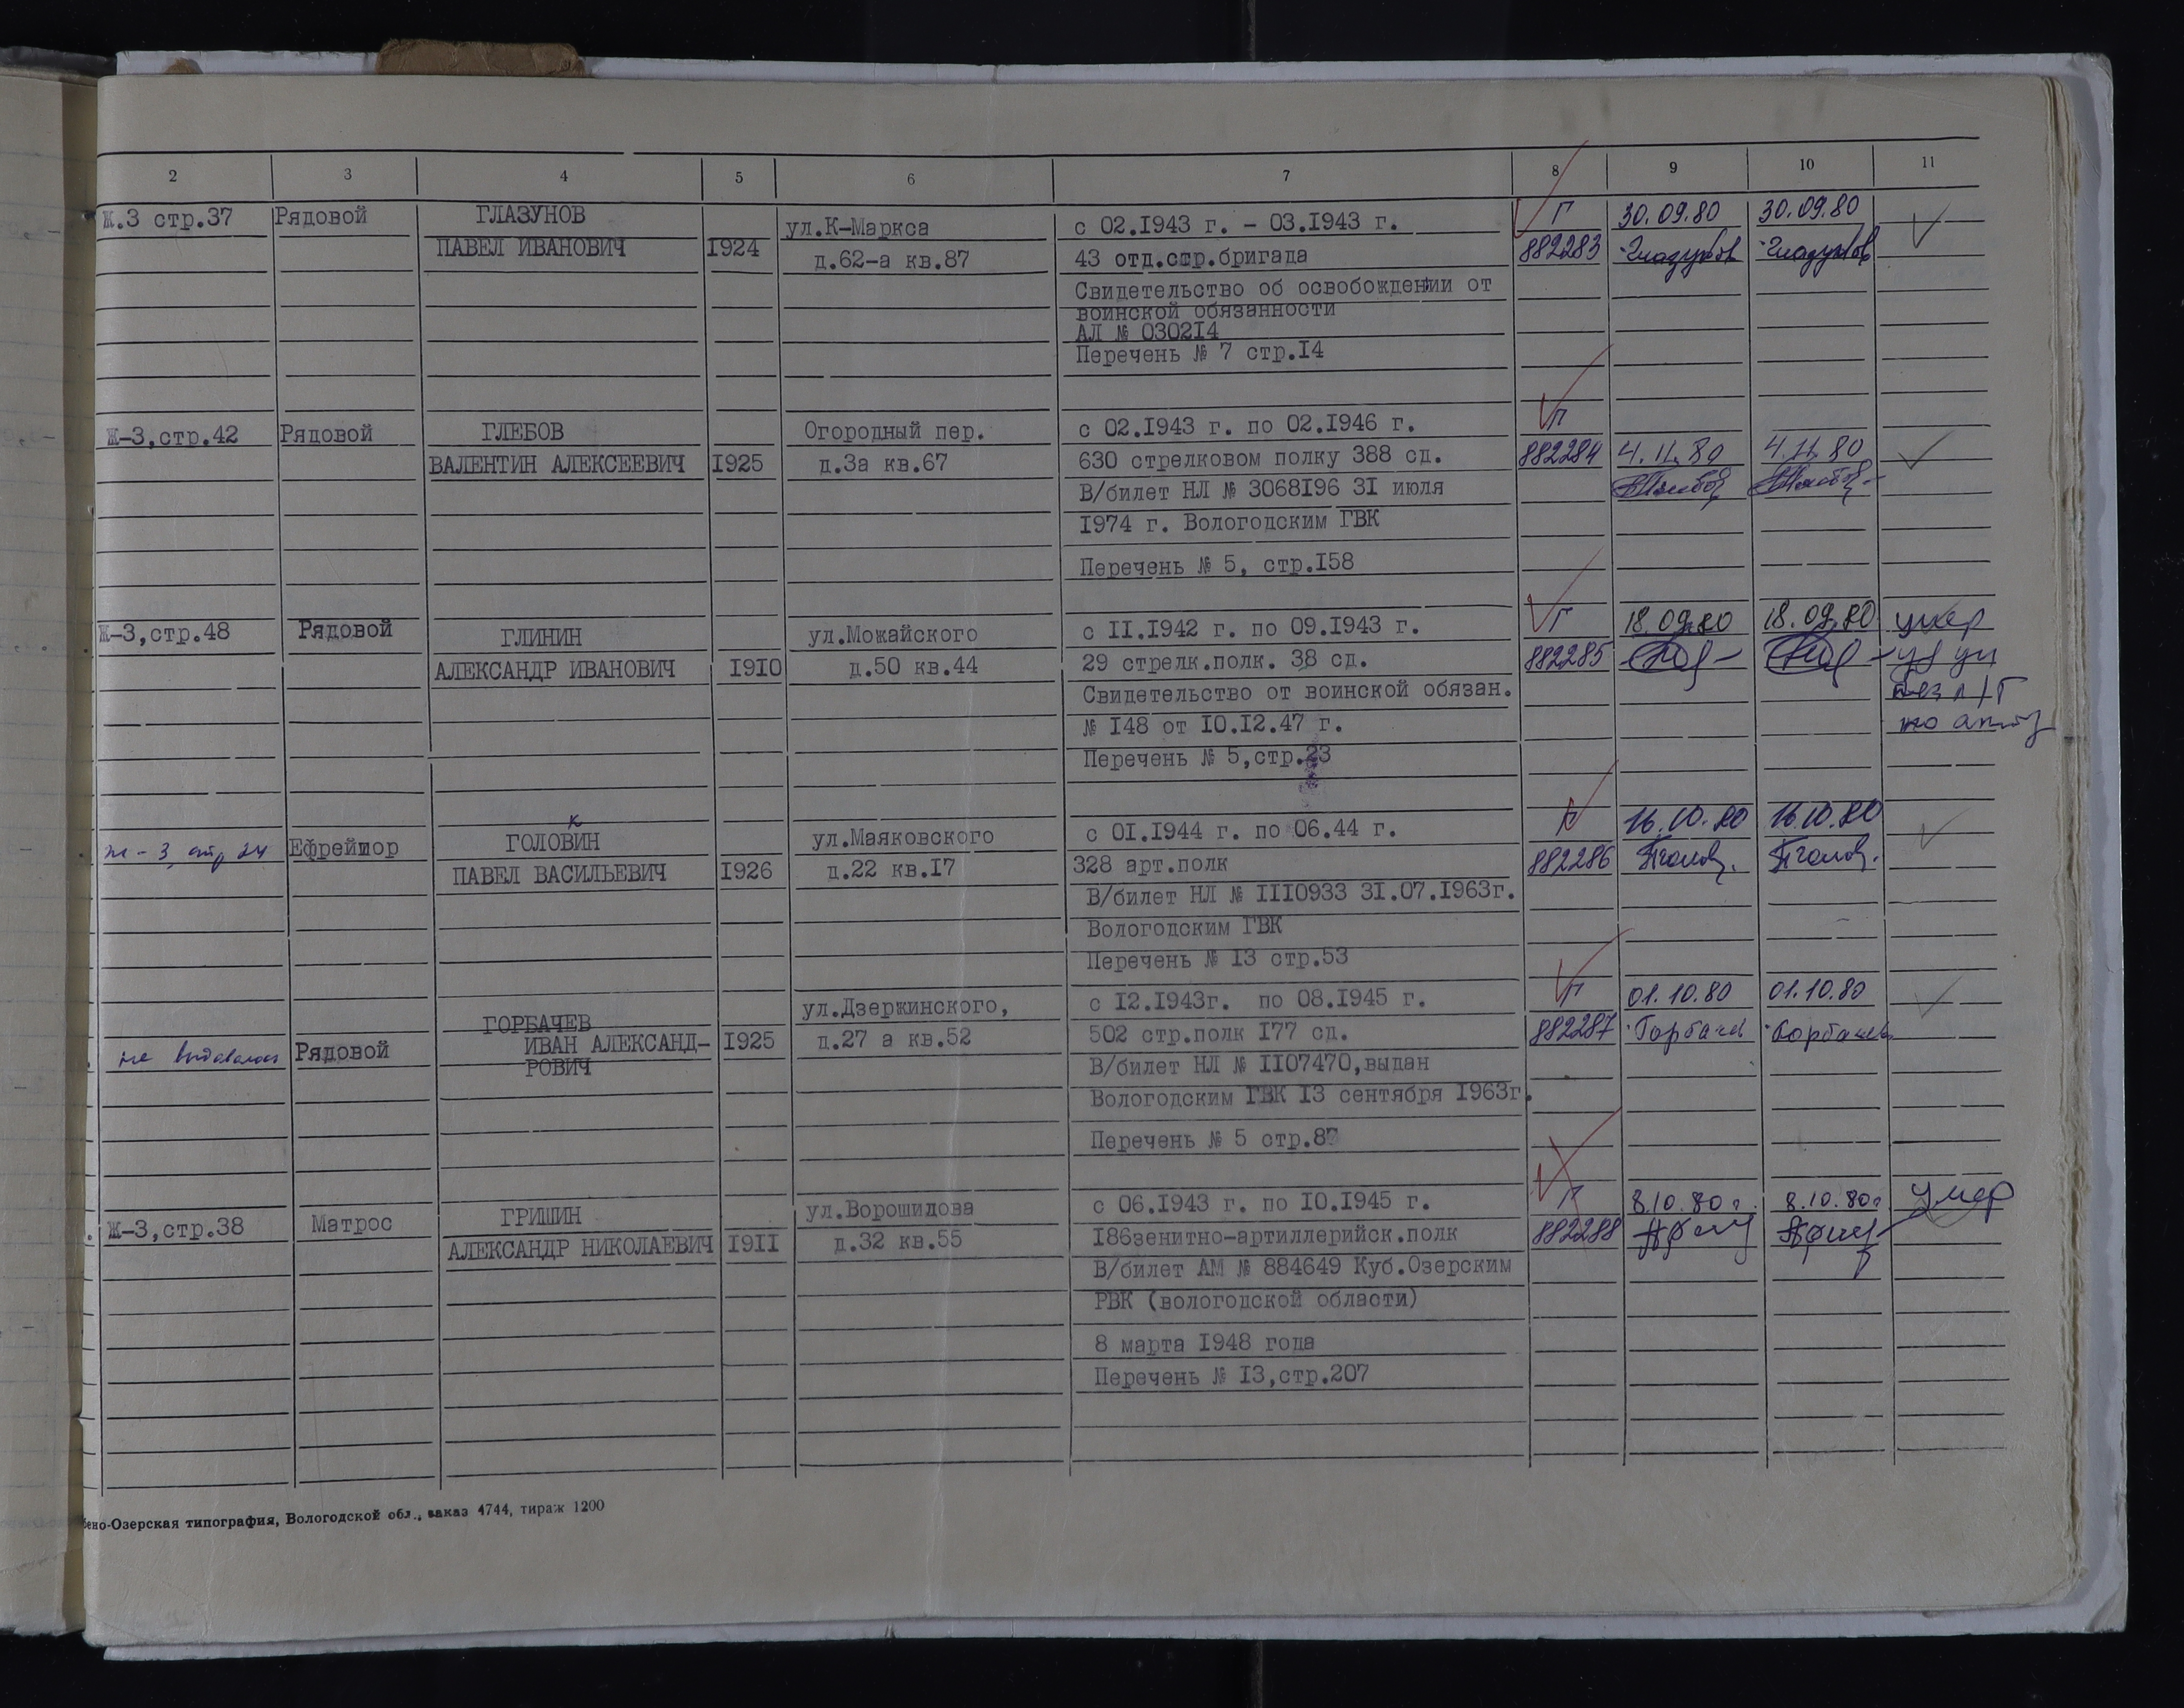 2 3 4 5 6 7 8 9 10 11
Ж.3 стр.37 Рядовой ГЛАЗУНОВ ул.К-Маркса с 02.1943 г. - 03.1943 г. Г 30.09.80 30.09.80
ПАВЕЛ ИВАНОВИЧ 1924 д.62-а кв.87 43 отд.стр.бригада 882283
Свидетельство об освобождении от
воинской обязанности
АЛ № 030214
Перечень № 7 стр.14
Ж-3,стр.42 Рядовой ГЛЕБОВ Огородный пер. с 02.1943 г. по 02.1946 г. Г
ВАЛЕНТИН АЛЕКСЕЕВИЧ 1925 д.3а кв.67 630 стрелковом полку 388 сд. 882284 4.11.80 4.11.80
В/билет НЛ № 3068196 31 июля
1974 г. Вологодским ГВК
Перечень № 5, стр.158
Ж-3,стр.48 Рядовой ГЛИНИН ул.Можайского с 11.1942 г. по 09.1943 г. Г 18.09.80 18.09.80 умер
АЛЕКСАНДР ИВАНОВИЧ 1910 д.50 кв.44 29 стрелк.полк. 38 сд. 882285
Свидетельство от воинской обязан.
№ 148 от 10.12.47 г.
Перечень № 5,стр.23
к
ж-3, стр 24 Ефрейтор ГОЛОВИН ул.Маяковского с 01.1944 г. по 06.44 г. Г 16.10.80 16.10.80
ПАВЕЛ ВАСИЛЬЕВИЧ 1926 д.22 кв.17 328 арт.полк 882286
В/билет НЛ № 1110933 31.07.1963г.
Вологодским ГВК
Перечень № 13 стр.53
ул.Дзержинского, с 12.1943г. по 08.1945 г. Г 01.10.80 01.10.80
ГОРБАЧЕВ
не выдавалась Рядовой ИВАН АЛЕКСАНД- 1925 д.27 а кв.52 502 стр.полк 177 сд. 882287
РОВИЧ В/билет НЛ № 1107470,выдан
Вологодским ГВК 13 сентября 1963г.
Перечень № 5 стр.87
Ж-3,стр.38 Матрос ГРИШИН ул.Ворошилова с 06.1943 г. по 10.1945 г. Г 8.10.80 г. 8.10.80г умер
АЛЕКСАНДР НИКОЛАЕВИЧ 1911 д.32 кв.55 186зенитно-артиллерийск.полк 882288
В/билет АМ № 884649 Куб.Озерским
РВК (вологодской области)
8 марта 1948 года
Перечень № 13,стр.207
бено-Озерская типография, Вологодской обл., заказ 4744, тираж 1200